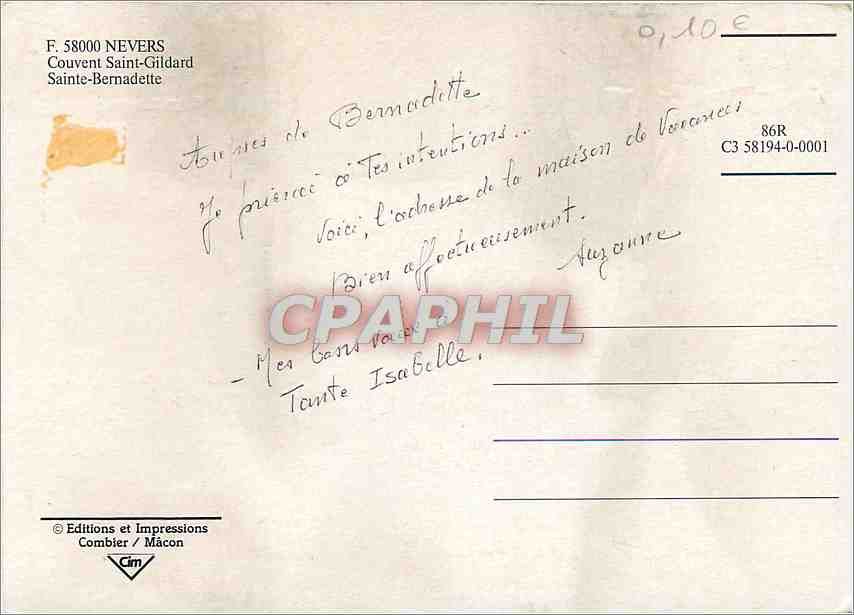 0,10 €
F. 58000 NEVERS
Couvent Saint-Gildard
Sainte-Bernadette
86R
C3 58194-0-0001
Auprès de Bernadette
Je prierai à Tes intentions...
Voici, l'adresse de la maison de Vacances
Bien affectueusement.
Suzanne
CPAPHIL
- Mes bons vœux à
Tante Isabelle.
© Editions et Impressions
Combier / Mâcon
Cim